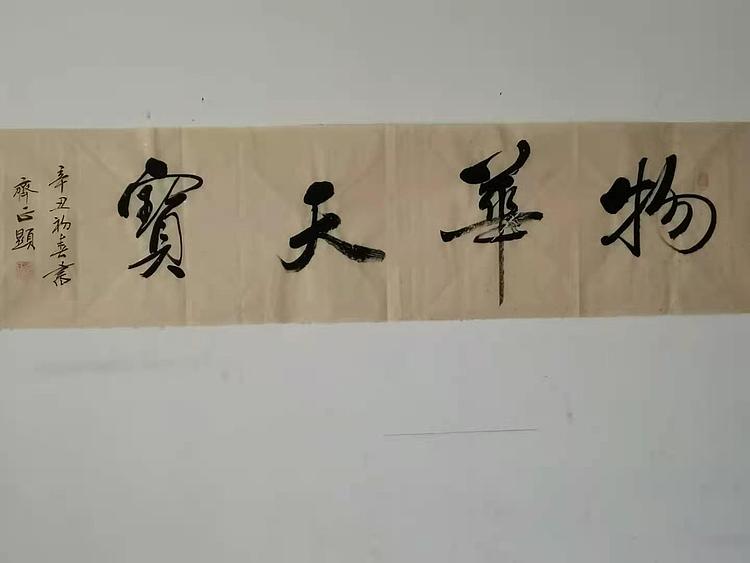 物華天寶
辛丑初春書
齊正顯